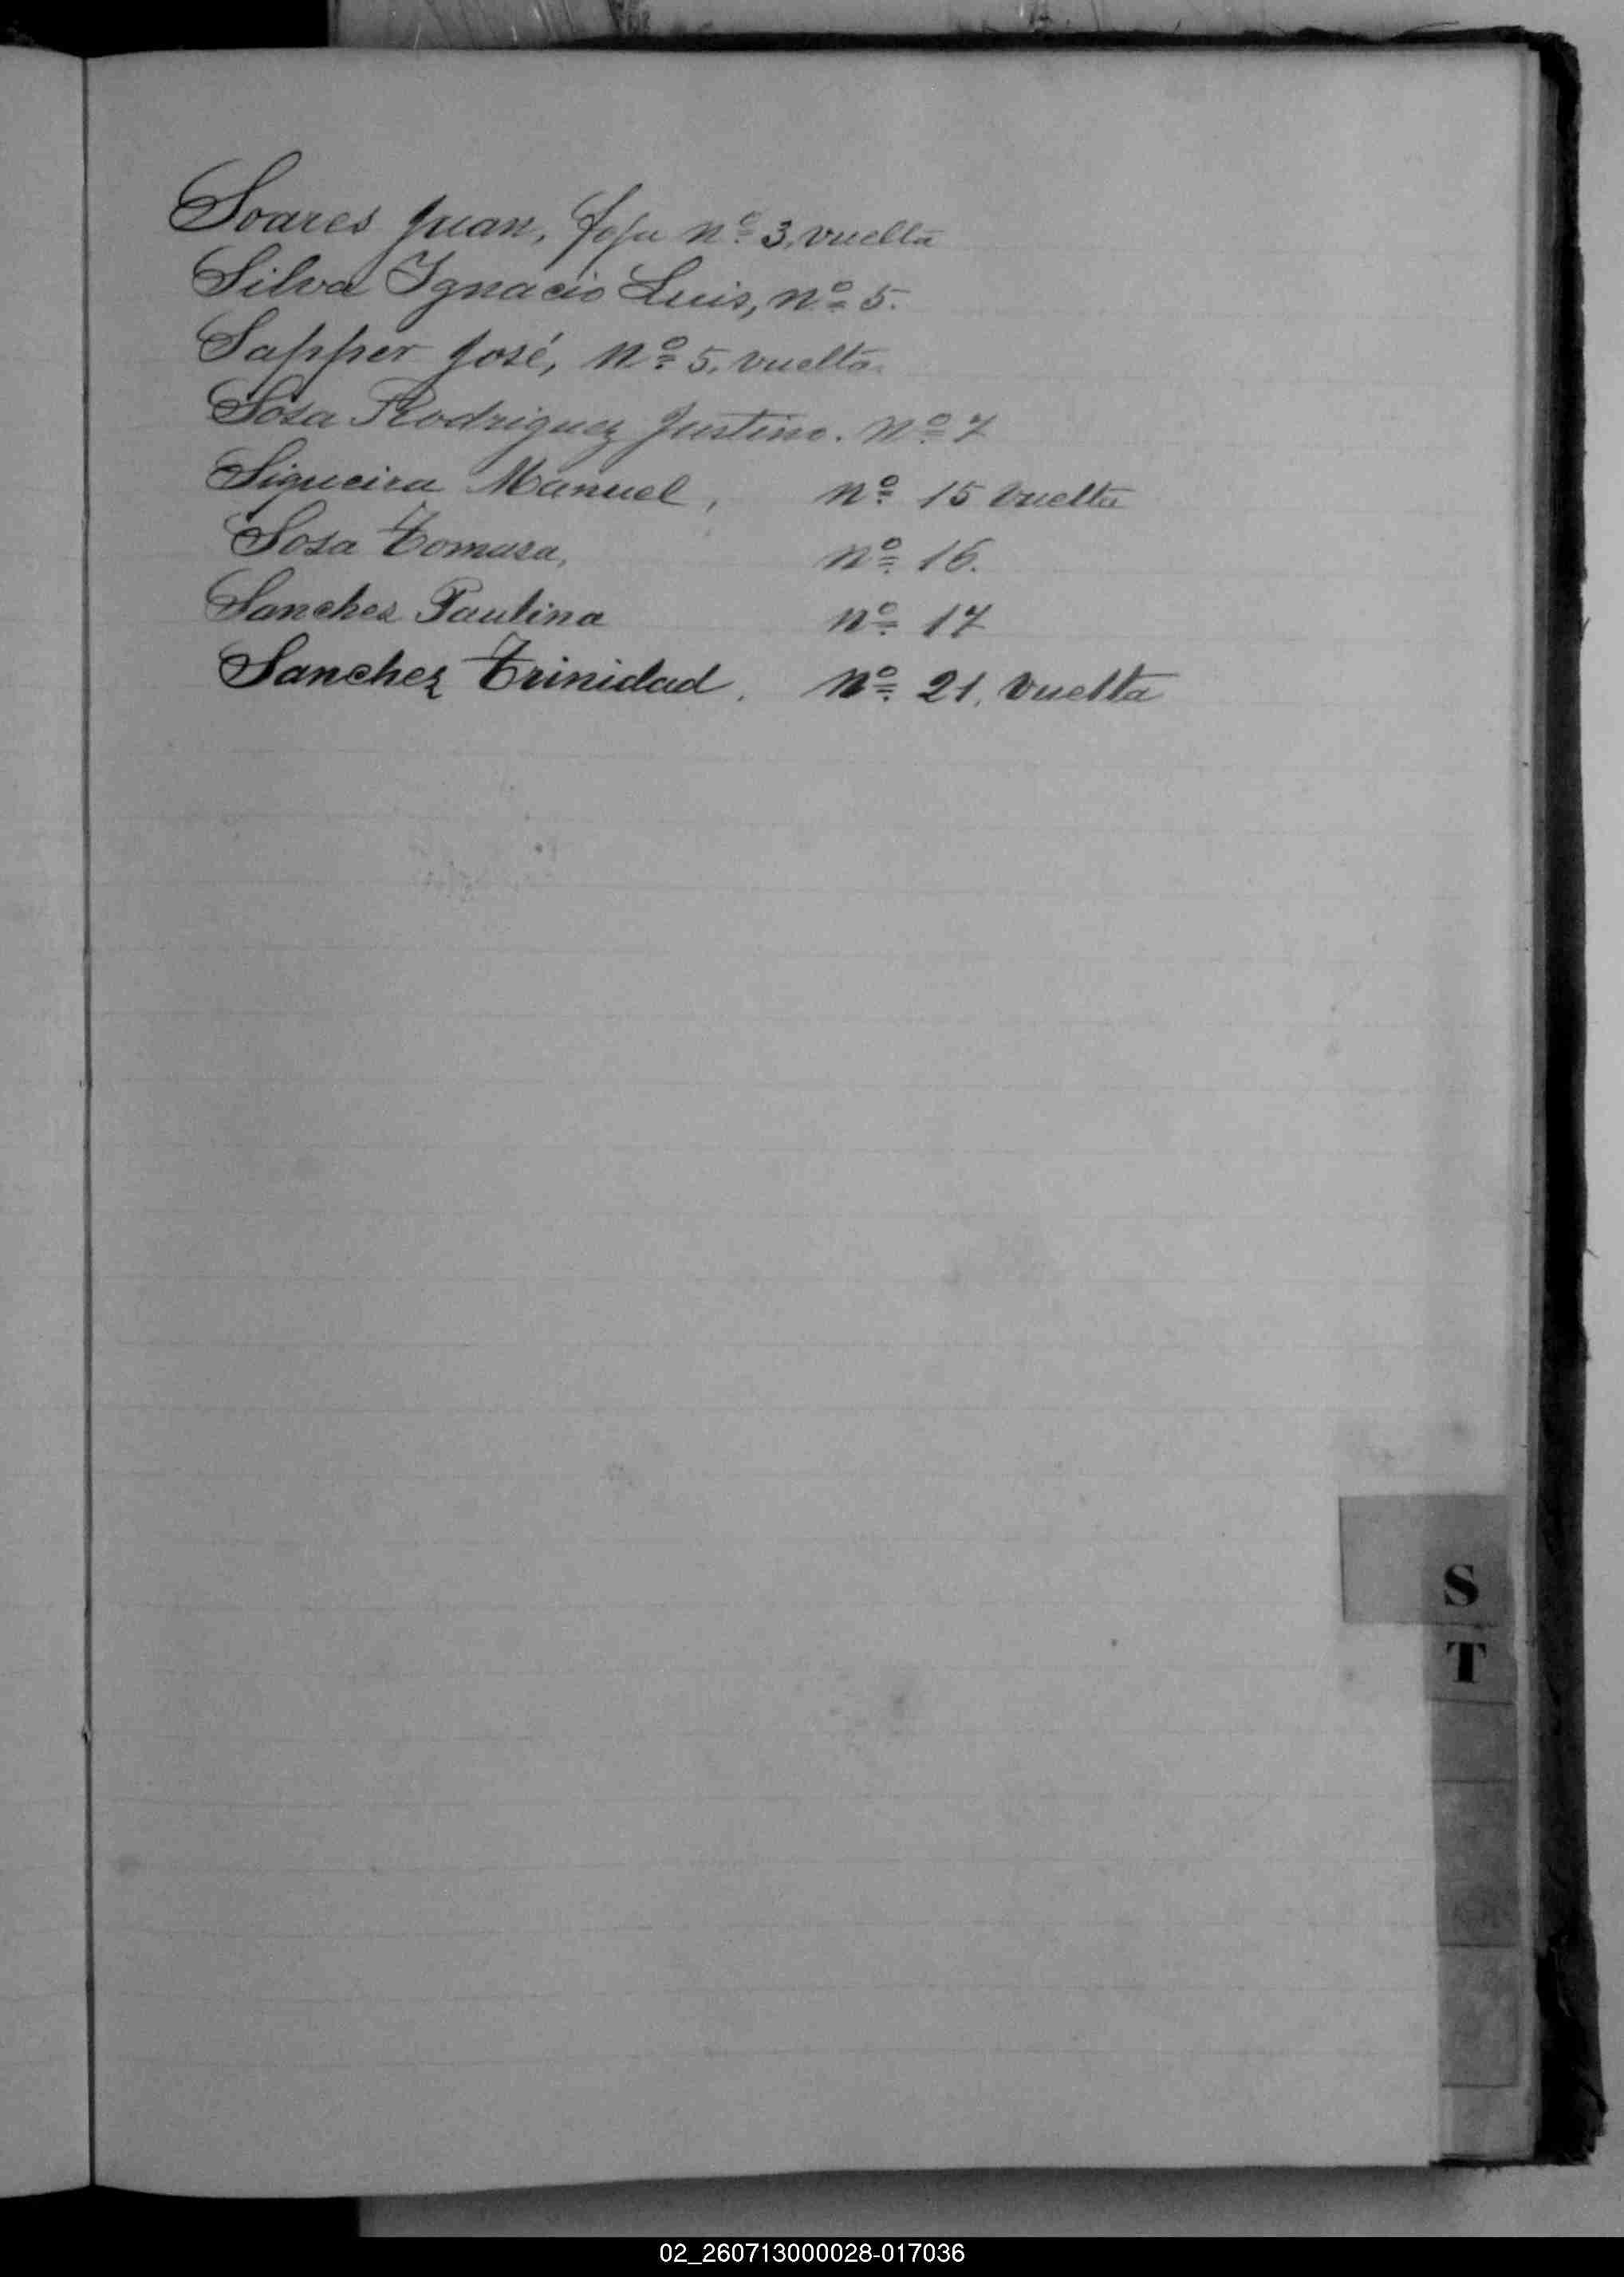 Soares Juan, Foja nº 3, vuelta
Silva Ignacio Luis, nº 5.
Sapper José, nº 5, vuelta.
Sosa Rodriguez Justino. nº 7
Siqueira Manuel, nº 15 vuelta
Sosa Tomasa, nº 16.
Sanches Paulina nº 17
Sanchez Trinidad. nº 21, vuelta
S
T
02_260713000028-017036